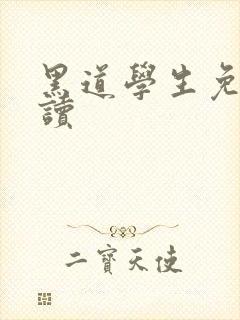 黑道學生免
讀
二寶天使